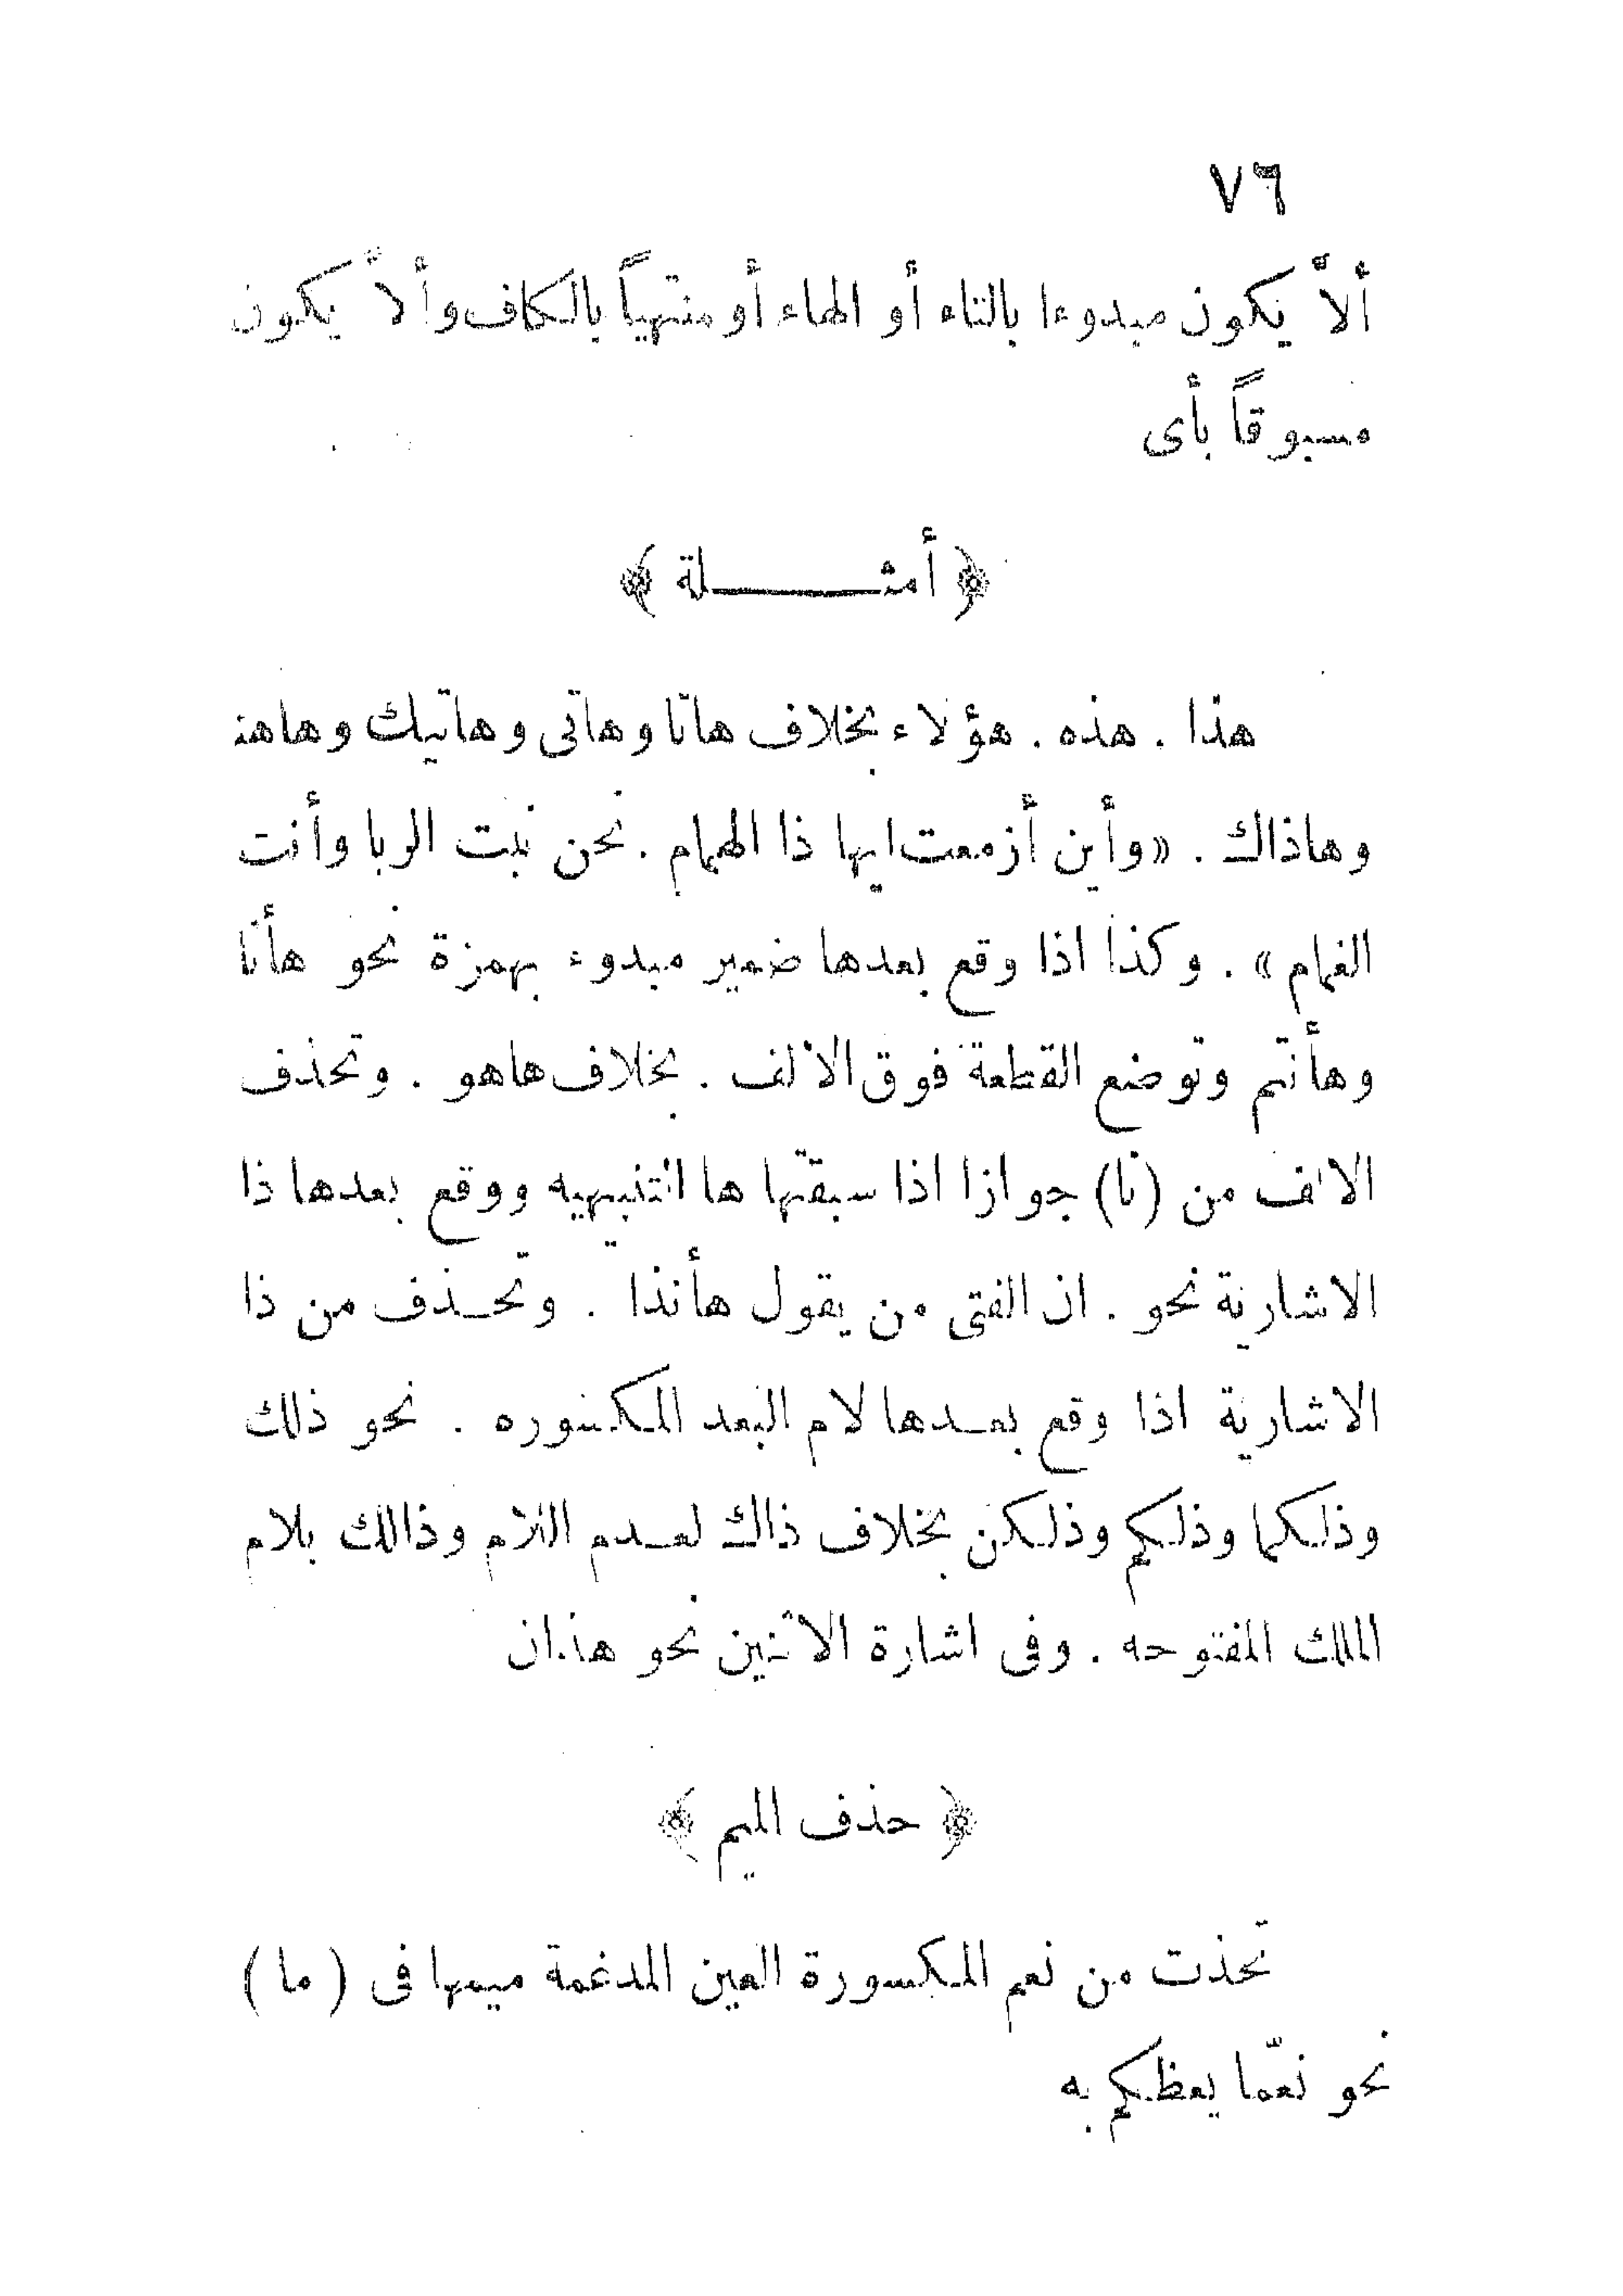 ٧٦
ألاّ يكون مبدوءا بالتاء أو الهاء أو منتهياً بالكاف وألاّ يكون
مسبوقاً بأى
﴿ أمثـــــلة ﴾
هذا . هذه . هؤلاء بخلاف هاتا وهاتى وهاتيك وهاهنا
وهاذاك . «وأين أزمعت ايها ذا الهمام . نحن نبت الربا وأنت
الغمام » . وكذا اذا وقع بعدها ضمير مبدوء بهمزة نحو هأنا
وهأنتم وتوضع القطعة فوق الالف . بخلاف هاهو . وتحذف
الالف من (نا) جوازا اذا سبقتها ها التنبيهيه ووقع بعدها ذا
الاشارية نحو . ان الفتى من يقول هأنذا . وتحـذف من ذا
الاشارية اذا وقع بعـدها لام البعد المكسوره . نحو ذلك
وذلكما وذلكم وذلكن بخلاف ذاك لعـدم اللام وذالك بلام
الملك المفتوحه . وفى اشارة الاثنين نحو هذان
﴿ حذف الميم ﴾
تحذت من نعم المكسورة العين المدغمة ميمها فى ( ما )
نحو نعمّا يعظكم به